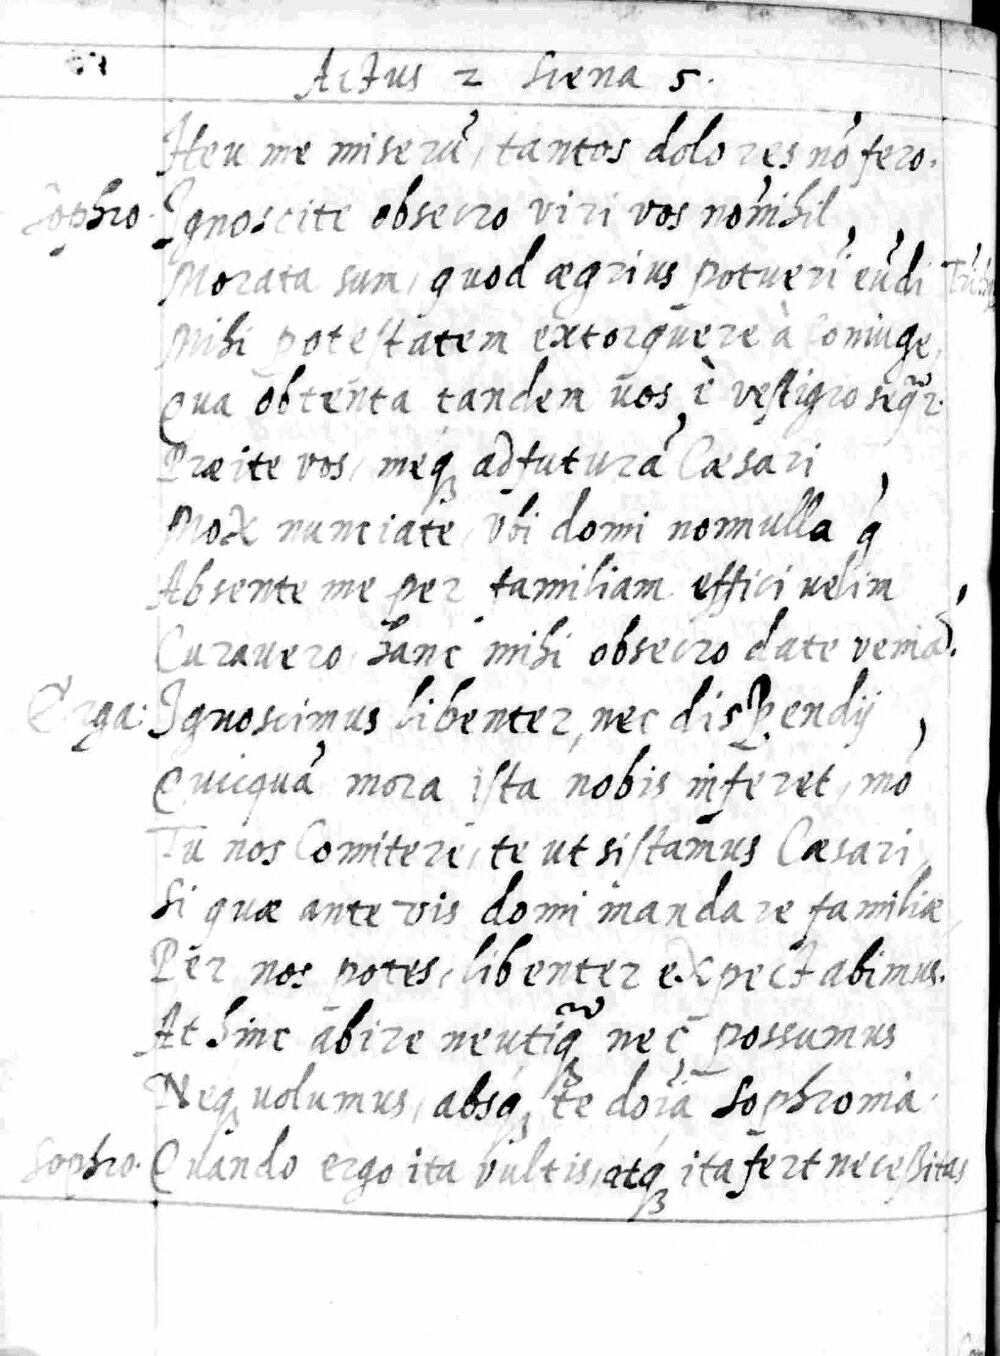 Actus 2 Scena 5.
Heu me miserũ, tantos dolores nõ fero.
Sophro. Ignoscite obsecro viri vos nõnihil
Morata sum, quod ægrius potuerĩ eũdi
Mihi potestatem extorquere à Coniuge,
Qua obtenta tandem vos è vestigio seqr̃.
Præite vos, meq; adfuturã Cæsari
Mox nunciate, vbi domi nonnulla q̃
Absente me per familiam effici velim
Curavero, hanc mihi obsecro date veniã.
Erga: Ignoscimus libenter, nec dispendij
Quicquã mora ista nobis inferet, mõ
Tu nos Comitere, te ut sistamus Cæsari,
Si quæ ante vis domi mandare familiæ,
Per nos potes, libenter expectabimus.
At hinc abire neutiq̃ nec possumus
Neq; volumus, absq; te dõia Sophronia.
Sophro. Quando ergo ita vultis, atq; ita fert necessitas